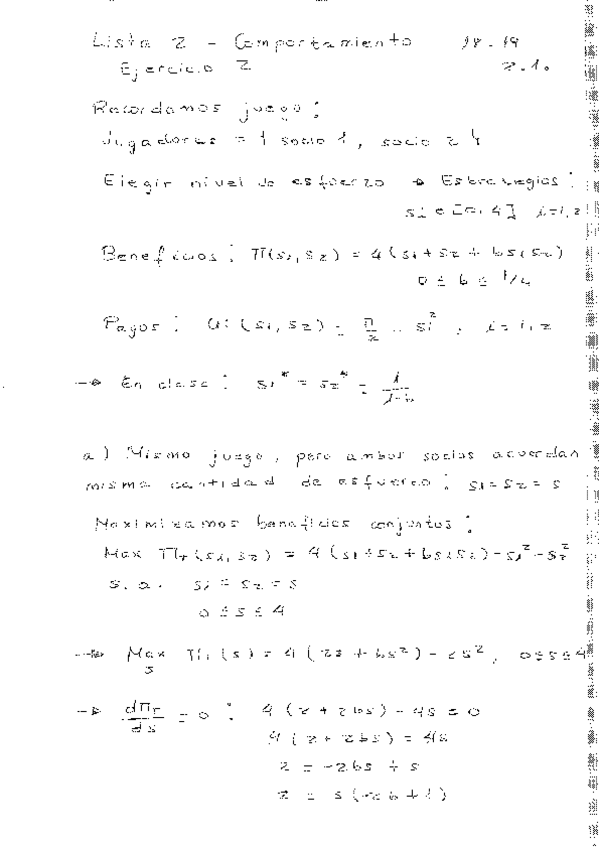 Lista 2 - Comportamiento 18-19
Ejercicio 2 2.1.
Recordamos juego :
Jugadores = { socio 1, socio 2 }
Elegir nivel de esfuerzo → Estrategias :
si ∈ [0, 4] i=1,2
Beneficios : Π(s1, s2) = 4(s1 + s2 + bs1s2)
0 ≤ b ≤ 1/4
Pagos : Ui (s1, s2) = Π/2 - si², i = 1, 2
→ En clase : s1* = s2* = 1/(1-b)
a) Mismo juego, pero ambos socios acuerdan
misma cantidad de esfuerzo : s1 = s2 = s
Maximizamos beneficios conjuntos :
Max ΠT (s1, s2) = 4 (s1 + s2 + bs1s2) - s1² - s2²
s. a. s1 = s2 = s
0 ≤ s ≤ 4
→ Max ΠT (s) = 4 (2s + bs²) - 2s², 0 ≤ s ≤ 4
s
→ dΠT/ds = 0 : 4 (2 + 2bs) - 4s = 0
4 (2 + 2bs) = 4s
2 = -2bs + s
2 = s (-2b + 1)